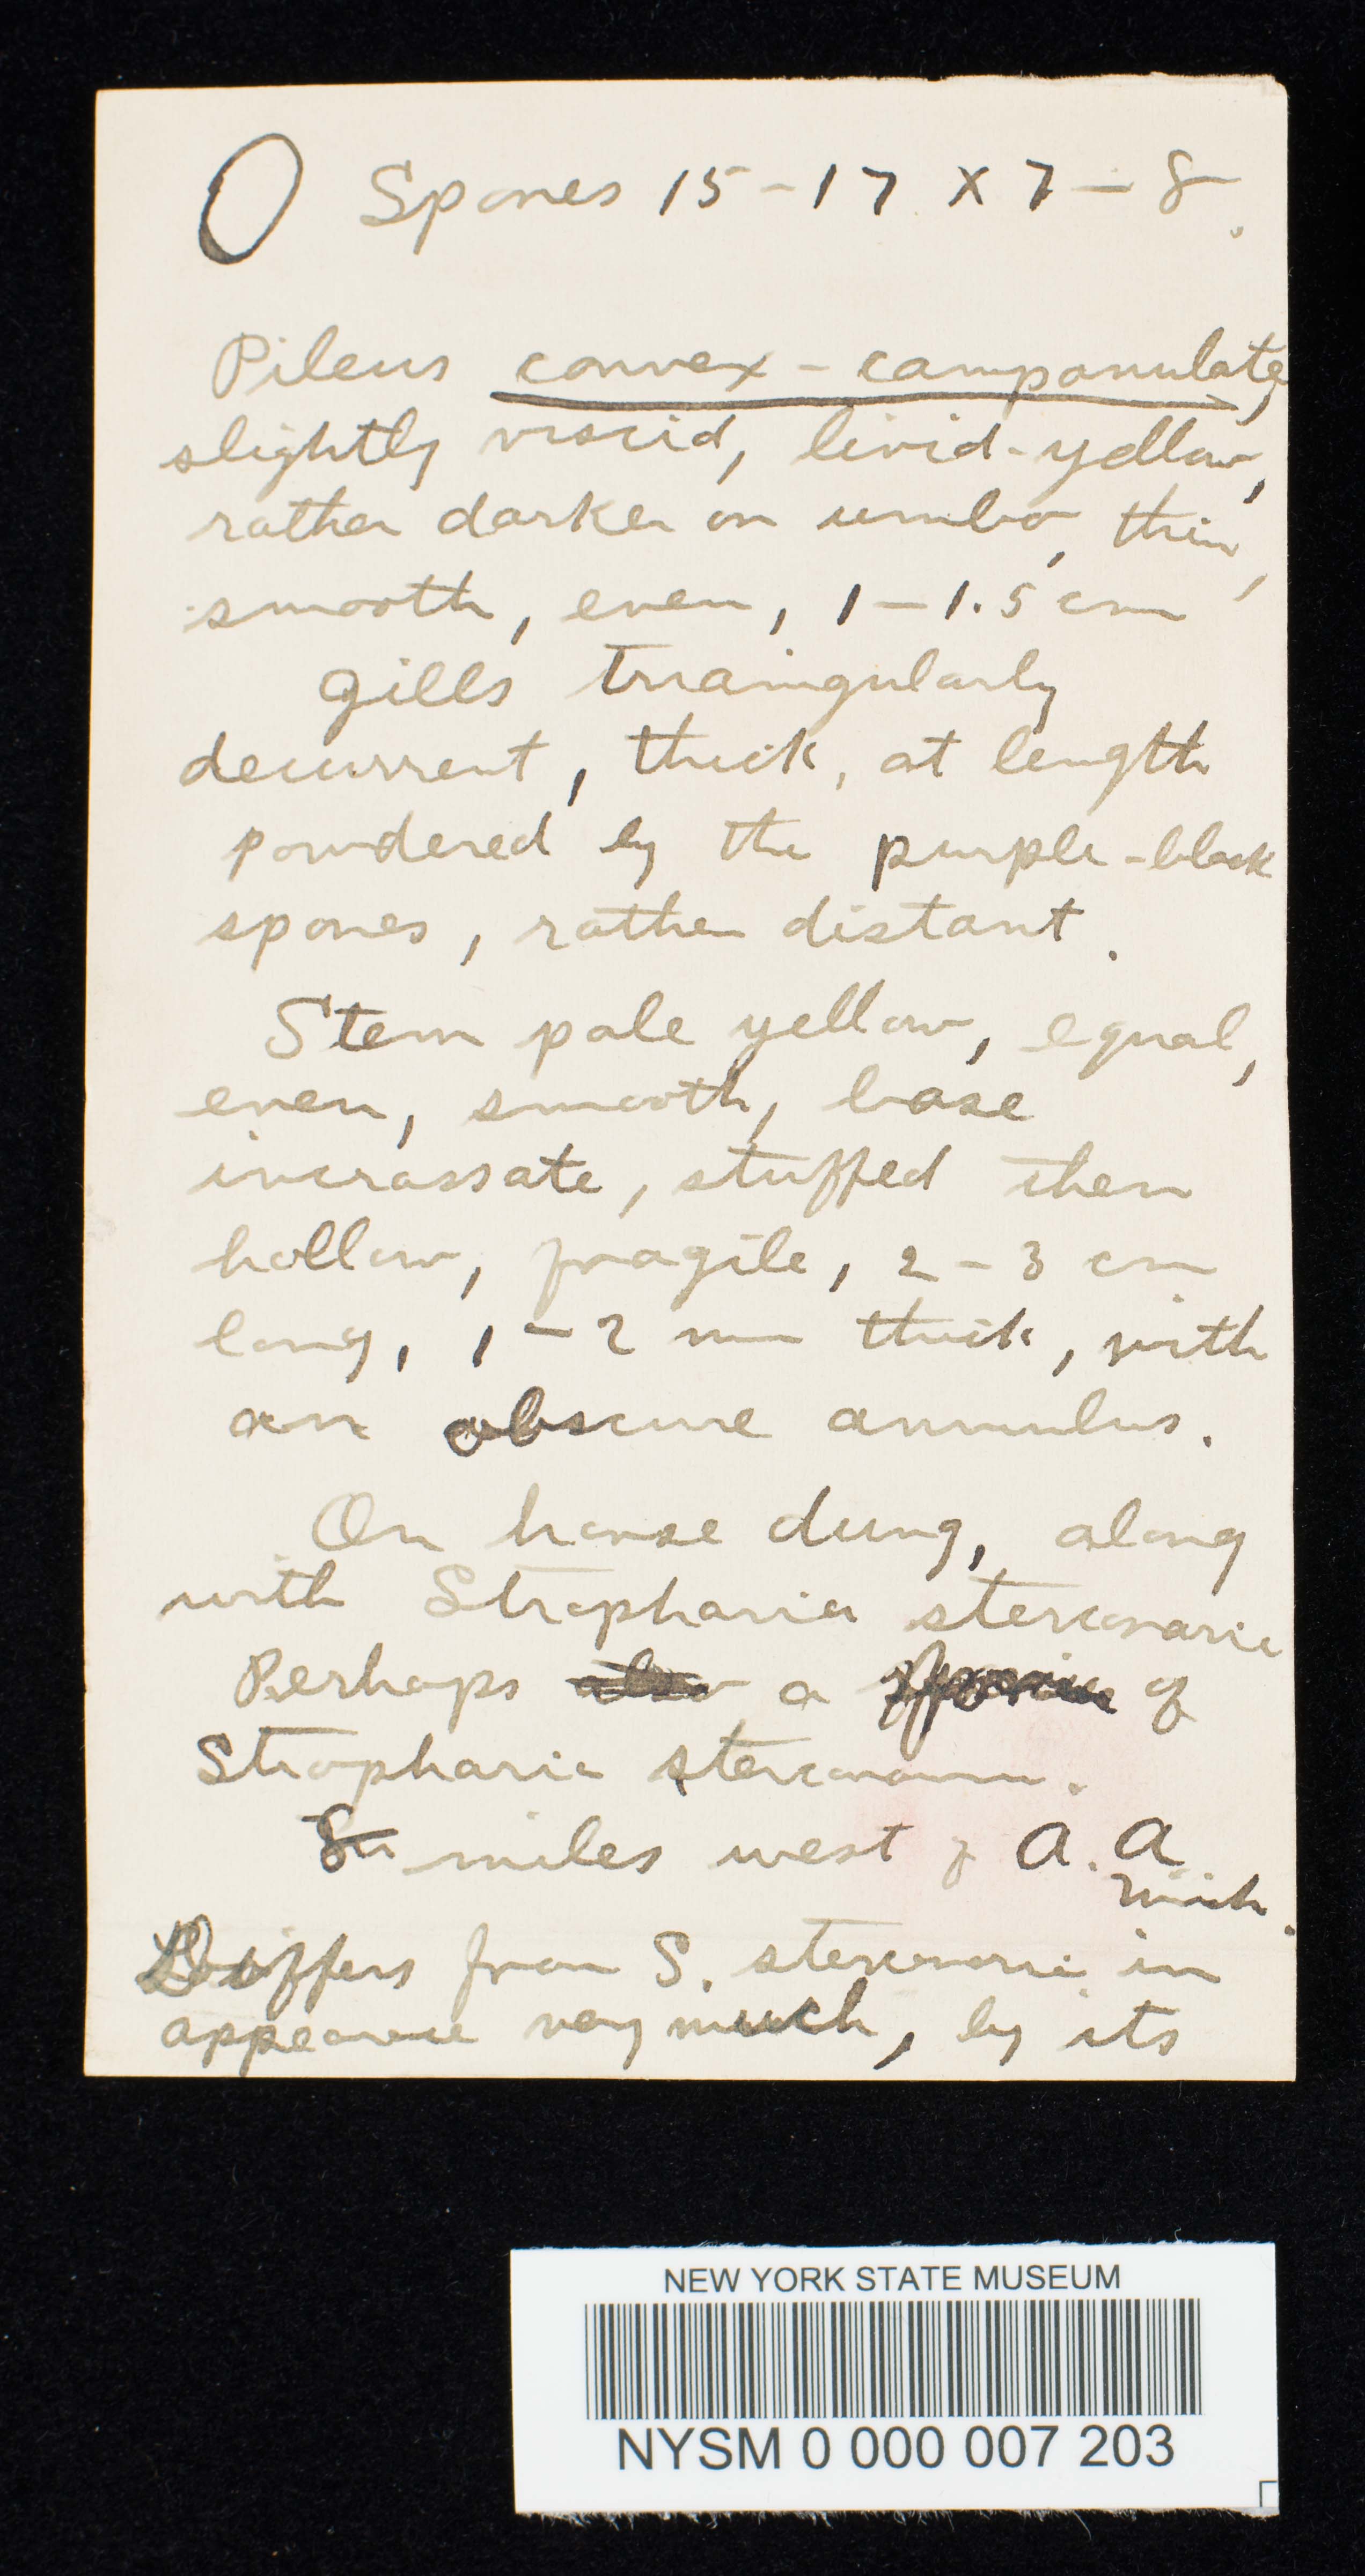 O Spores 15-17 x 7-8.
Pileus convex-campanulate,
slightly viscid, livid-yellow,
rather darker on umbo, thin,
smooth, even, 1-1.5 cm
Gills triangularly
decurrent, thick, at length
powdered by the purple-black
spores, rather distant.
Stem pale yellow, equal,
even, smooth, base
incrassate, stuffed then
hollow, fragile, 2-3 cm
long, 1-2 mm thick, with
an obscure annulus.
On horse dung, along
with Stropharia stercoraria
Perhaps also a of
Stropharia
miles west of A. A
Mich.
Differs from S. stercoraria in
appearance very much, by its
NEW YORK STATE MUSEUM
NYSM 0 000 007 203